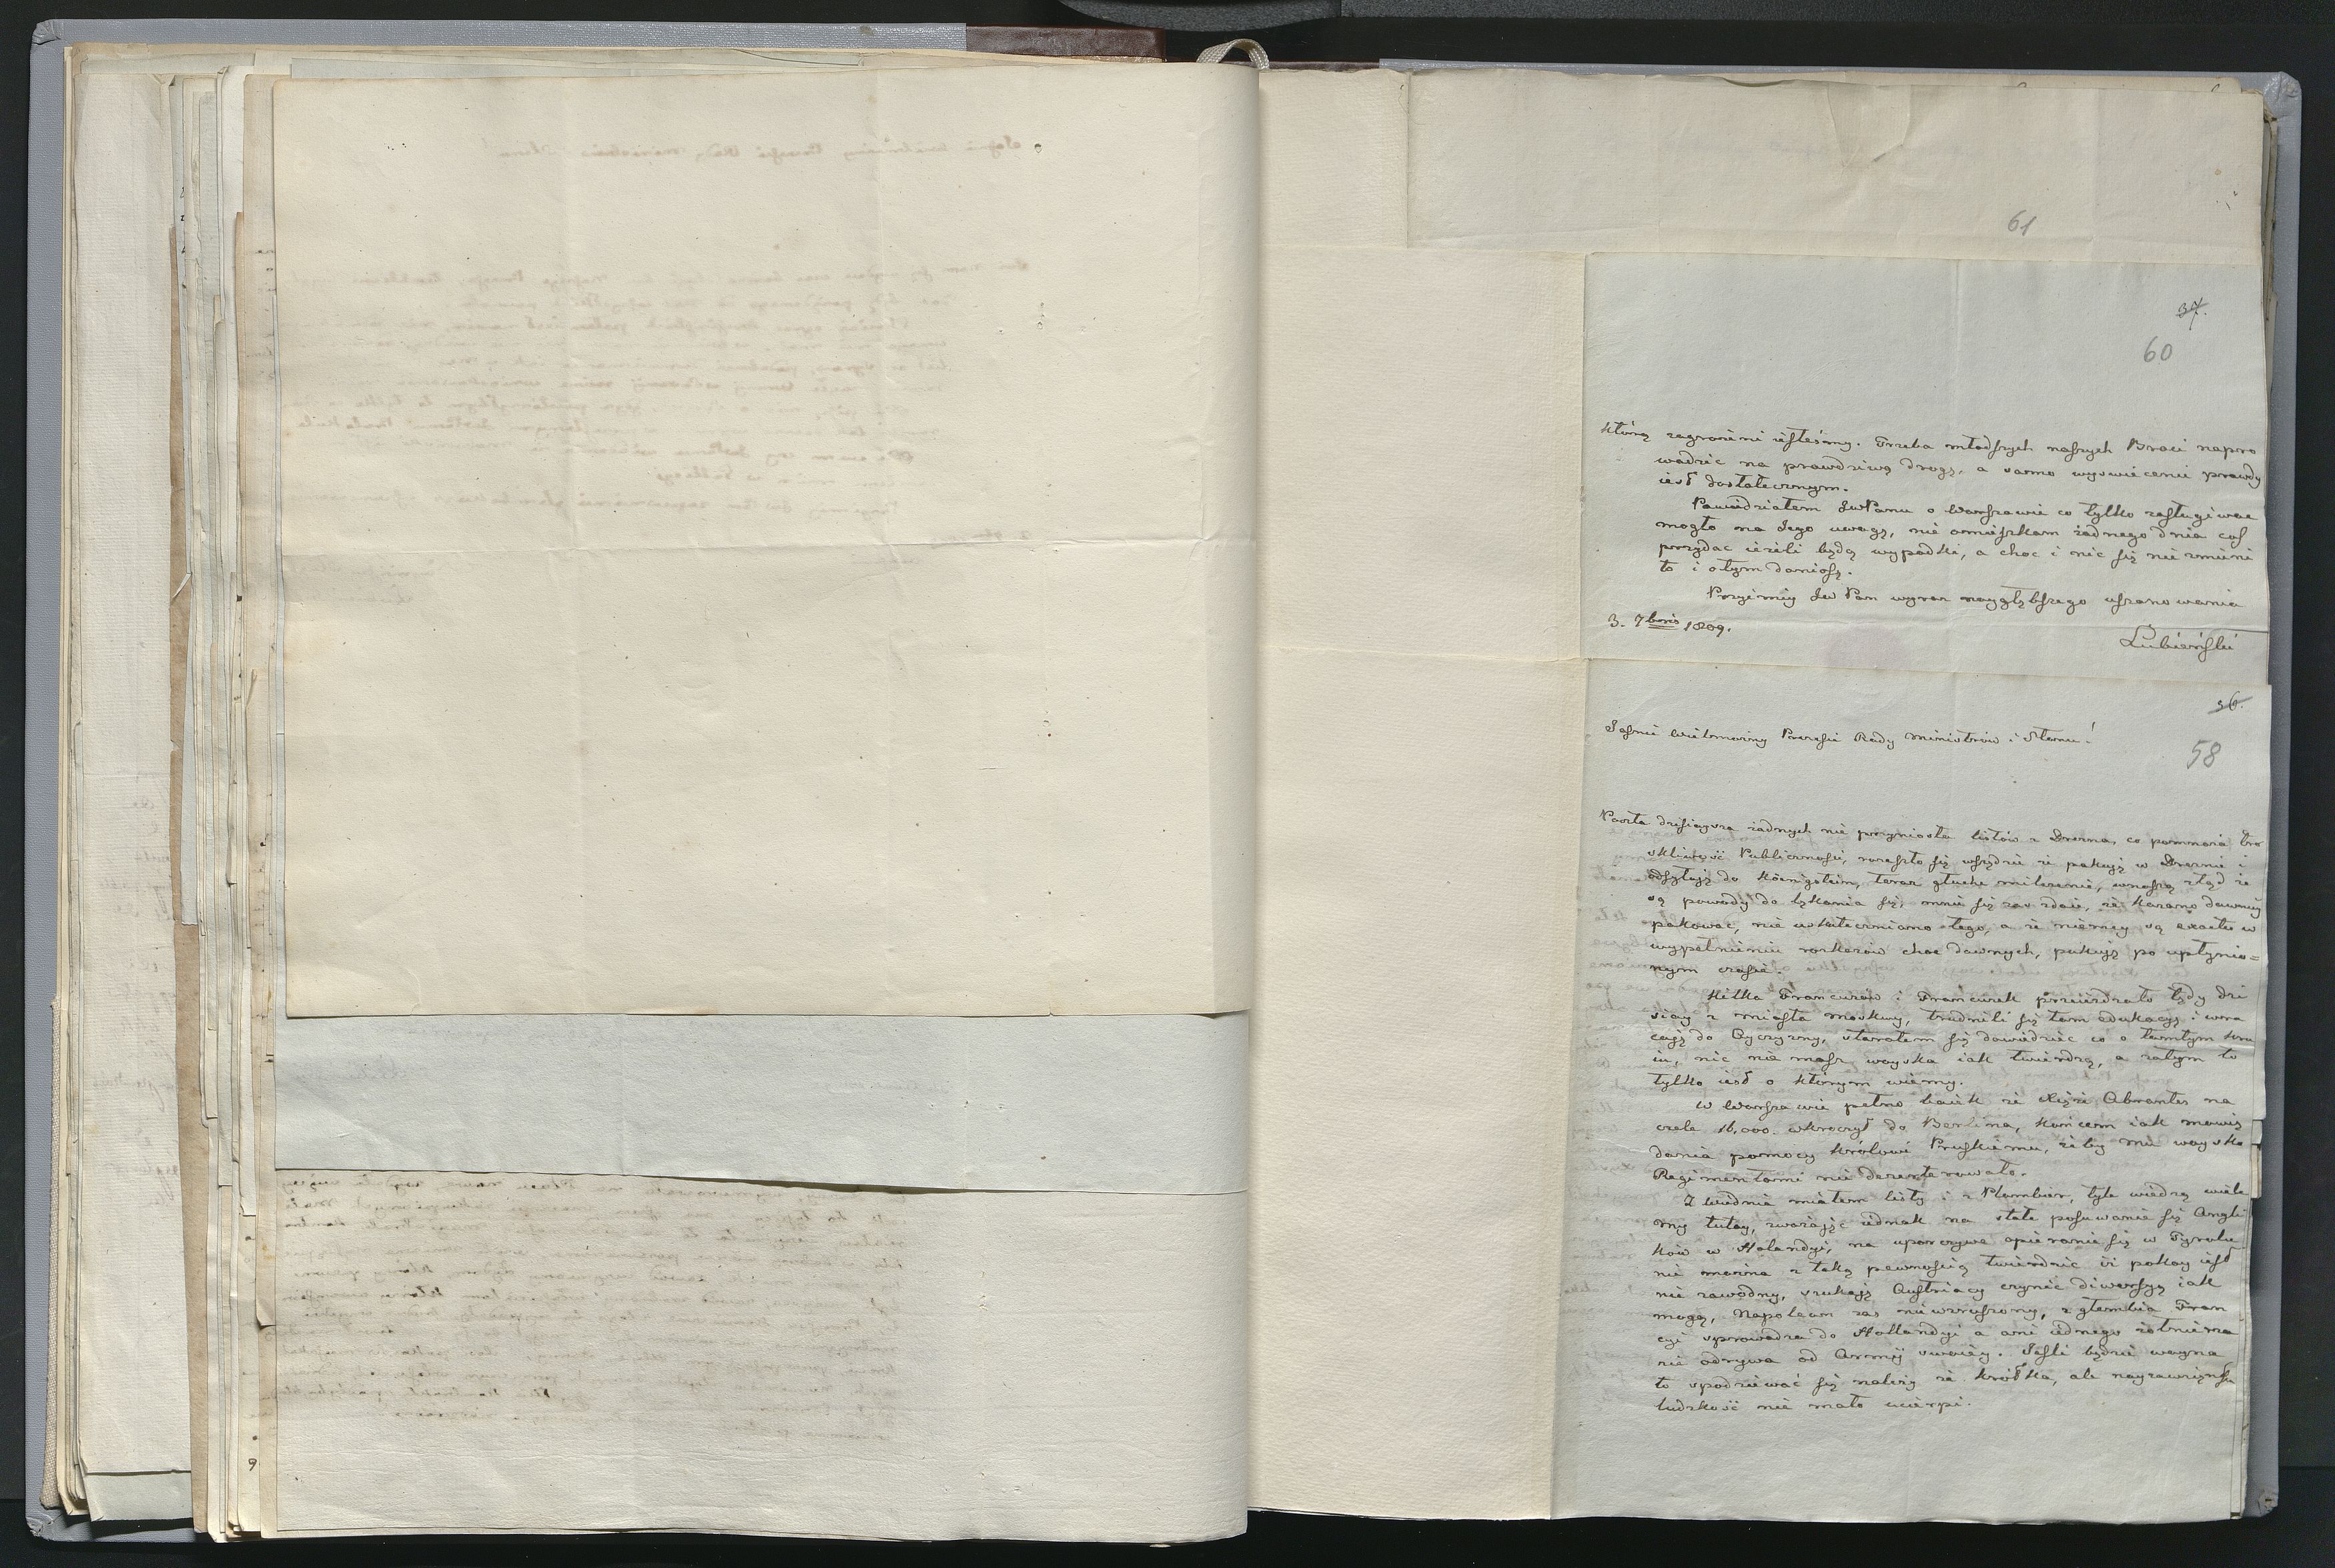 61
37.
60
którą zagrożeni iesteśmy. Trzeba młodszych naszych Braci napro
wadzić na prawdziwą drogę, a samo wyswiecenie prawdy
iest dostatecznym.
Powiedziałem JWPanu o Warszawie co tylko zasługiwać
mogło na Jego uwagę, nie omieszkam żadnego dnia coś
przydac ieżeli będą wypadki, a choc i nic się nie zmieni
to i otym doniosę.
Przyimiy JW Pan wyraz naygłębszego uszanowania
3. 7bris 1809.
Łubieński
36.
Jaśnie Wielmożny Prezesie Rady Ministrów i Stanu!
58
Poczta dzisieysza żadnych nie przyniosła listów z Drezna, co pomnaża tro
skliwość Publiczności, rozeszło się wszędzie że pakuią w Dreznie i
odsyłaią do Königstein, teraz głuche milczenie, wnoszą ztąd że
są powody do lękania się, mnie się zas zdaie, że kazano dawniey
pakować, nie uskuteczniono tego, a że niemcy są exacte w
wypełnieniu rozkazów choc dawnych, pakuią po upłynio=
nym czasie.
Kilka Francuzów i Francuzek przeiezdzało tędy dzi
siay z miasta Moskwy, trudnili się tam edukacyą i wra
caią do Oyczyzny, starałem się dowiedziec co o tamtym kra
iu, nic nie masz woyska iak twierdzą, a zatym to
tylko iest o którym wiemy.
W Warszawie pełno baiek że Xiąże Abrantes na
czele 16,000. wkroczył do Berlina, końcem iak mowią
dania pomocy Królowi Pruskiemu, żeby mu woysko
Regimentami nie dezerterowało.
Z Wiednia miałem listy i z Plombier, tyle wiedzą wiele
my tutay, zważaiąc iednak na stałe posuwanie się Angli
ków w Holandyi, na uporczywe opieranie się w Tyrolu
nie można z taką pewnością twierdzic iż pokoy iest
nie zawodny, szukaią Austriacy czynic diwersyą iak
mogą, Napoleon zas niewzruszony, z głembia Fran
cyi sprowadza do Hollandyi a ani iednego żołnierza
nie odrywa od Armij swoiey. Jesli będzie woyna
to spodziewać się należy że krótka, ale nayzawziętsza
ludzkość nie mało ucierpi.